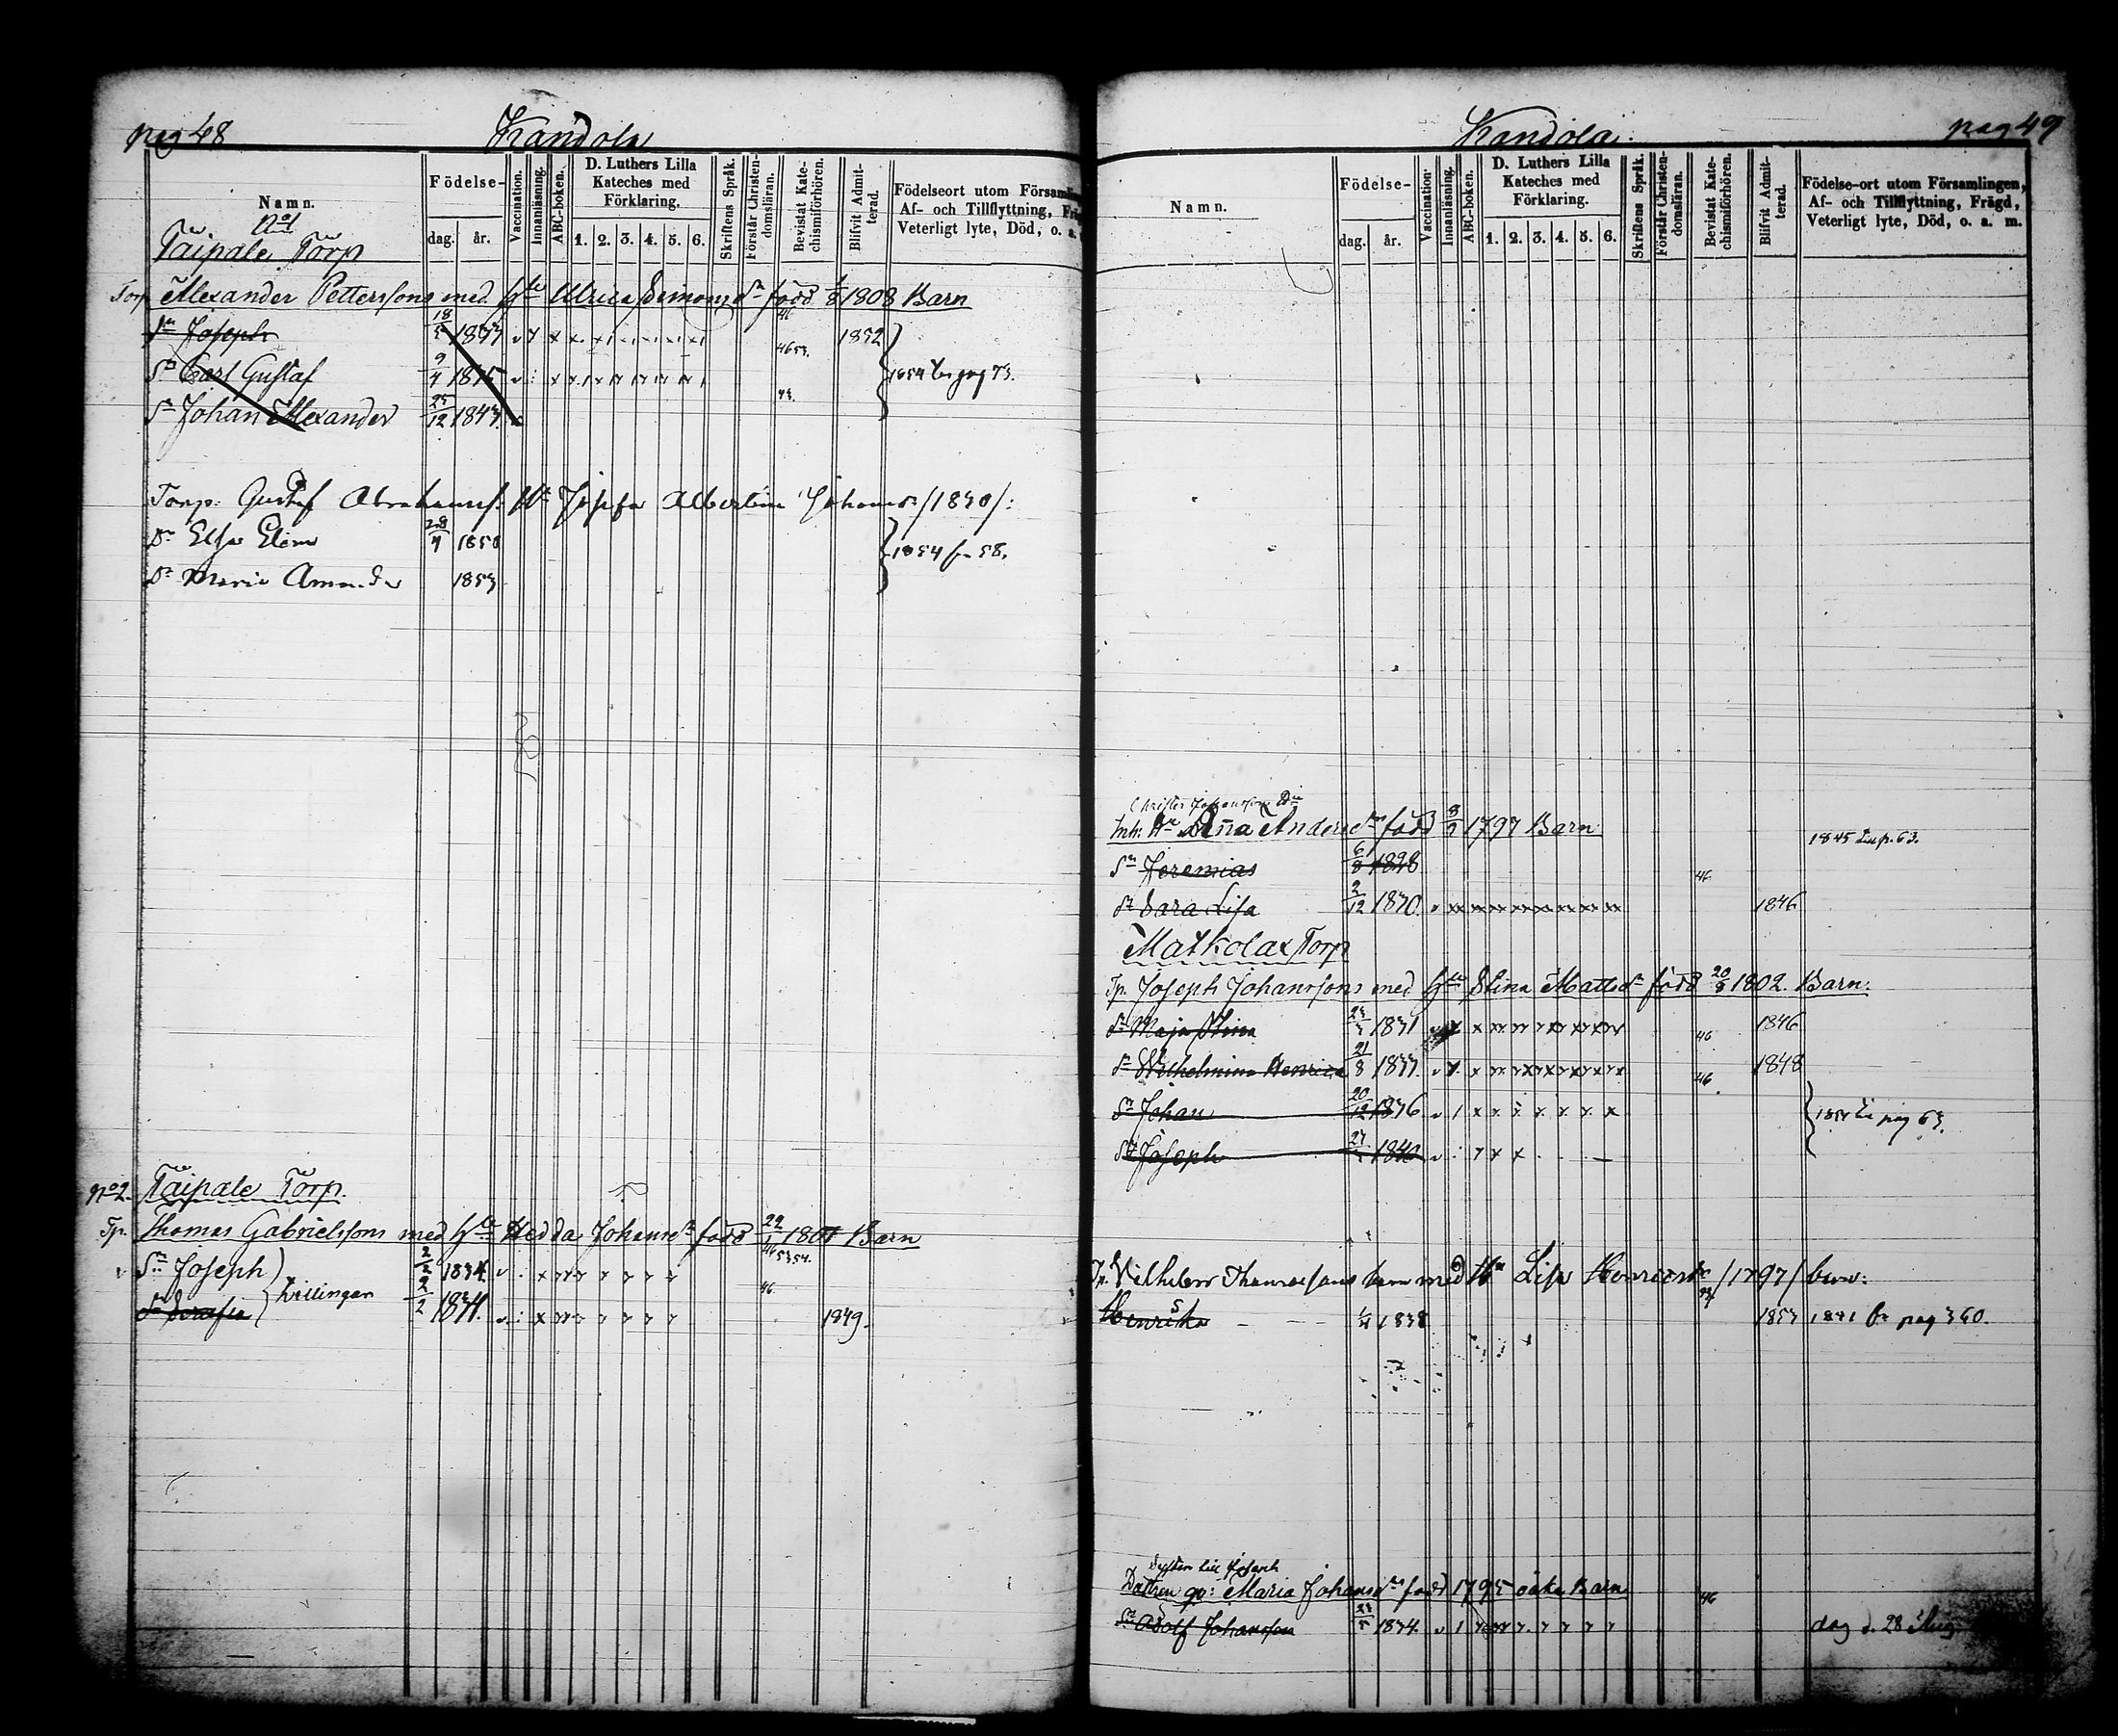 pag 48
Kandola
Namn.
Födelse-
dag.
år.
Vaccination.
Innanläsning.
ABC-boken.
D. Luthers Lilla
Kateches med
Förklaring.
1. 2. 3. 4. 5. 6.
Skriftens Språk.
Förstår Christen-
domsläran.
Bevistat Kate-
chismiförhören.
Blifvit Admit-
terad.
Födelseort utom Församlin
Af- och Tillflyttning,
Veterligt lyte, Död, o. a.
No 1
Taipale Torp
Torp. Alexander Petterssons med Hu Ulrica Simonsdr född 1808 Barn
Sn Joseph 18/5 1837 1852
46
Sn Carl Gustaf 9/4 1845 1854 pag 73.
4653.
Sn Johan Alexander 25/12 1847
Torp: Gustaf Abrahamss: Hu Josefa Albertina Johansdr /1830/:
Dr Elsa 28/9 1850 1854 fr 58.
Dr Maria Amanda 1853
No 2. Taipale Torp.
Tp. Thomas Gabrielssons med Hu Hedda Johansdr född 22/1 1801 Barn
Sn Joseph 2/2 1834 465354.
tvillingar
Dr Serafia 2/2 1834. 46 1849.
Kandola.
pag 49
Namn.
Födelse-
dag. år.
Vaccination.
Innanläsning.
ABC-boken.
D. Luthers Lilla
Kateches med
Förklaring.
1. 2. 3. 4. 5. 6.
Skriftens Språk.
Förstår Christen-
domsläran.
Bevistat Kate-
chismiförhören.
Blifvit Admit-
terad.
Födelse-ort utom Församlingen,
Af- och Tillflyttning, Frägd,
Veterligt lyte, Död, o. a. m.
Christer Johanssons
Inh: Anna Andersdr född 8/9 1797 Barn
1845 p. 63.
Sn Jeremias 6/8 1828
Dr Sara Lisa 2/12 1830. 46 1846
Matkolax Torp
Tp. Joseph Johanssons med Hu Stina Mattsdr född 20/8 1802. Barn.
Dr Maja Stina 1831 46 1846
Dr Wilhelmina Henrica 21/8 1833. 46 1848
Sn Johan 20/12 1836 pag 63.
Sn Joseph 1840
Tp. Vilhelm Thomassons med Hu Lisa Henricsdr /1797/ barn:
Henrika 1838 1853 1841 fr pag 360.
Maria Johansdr född 1795 Barn
Sn Adolf Johansson 1834. 46
dog d. 28 Aug.